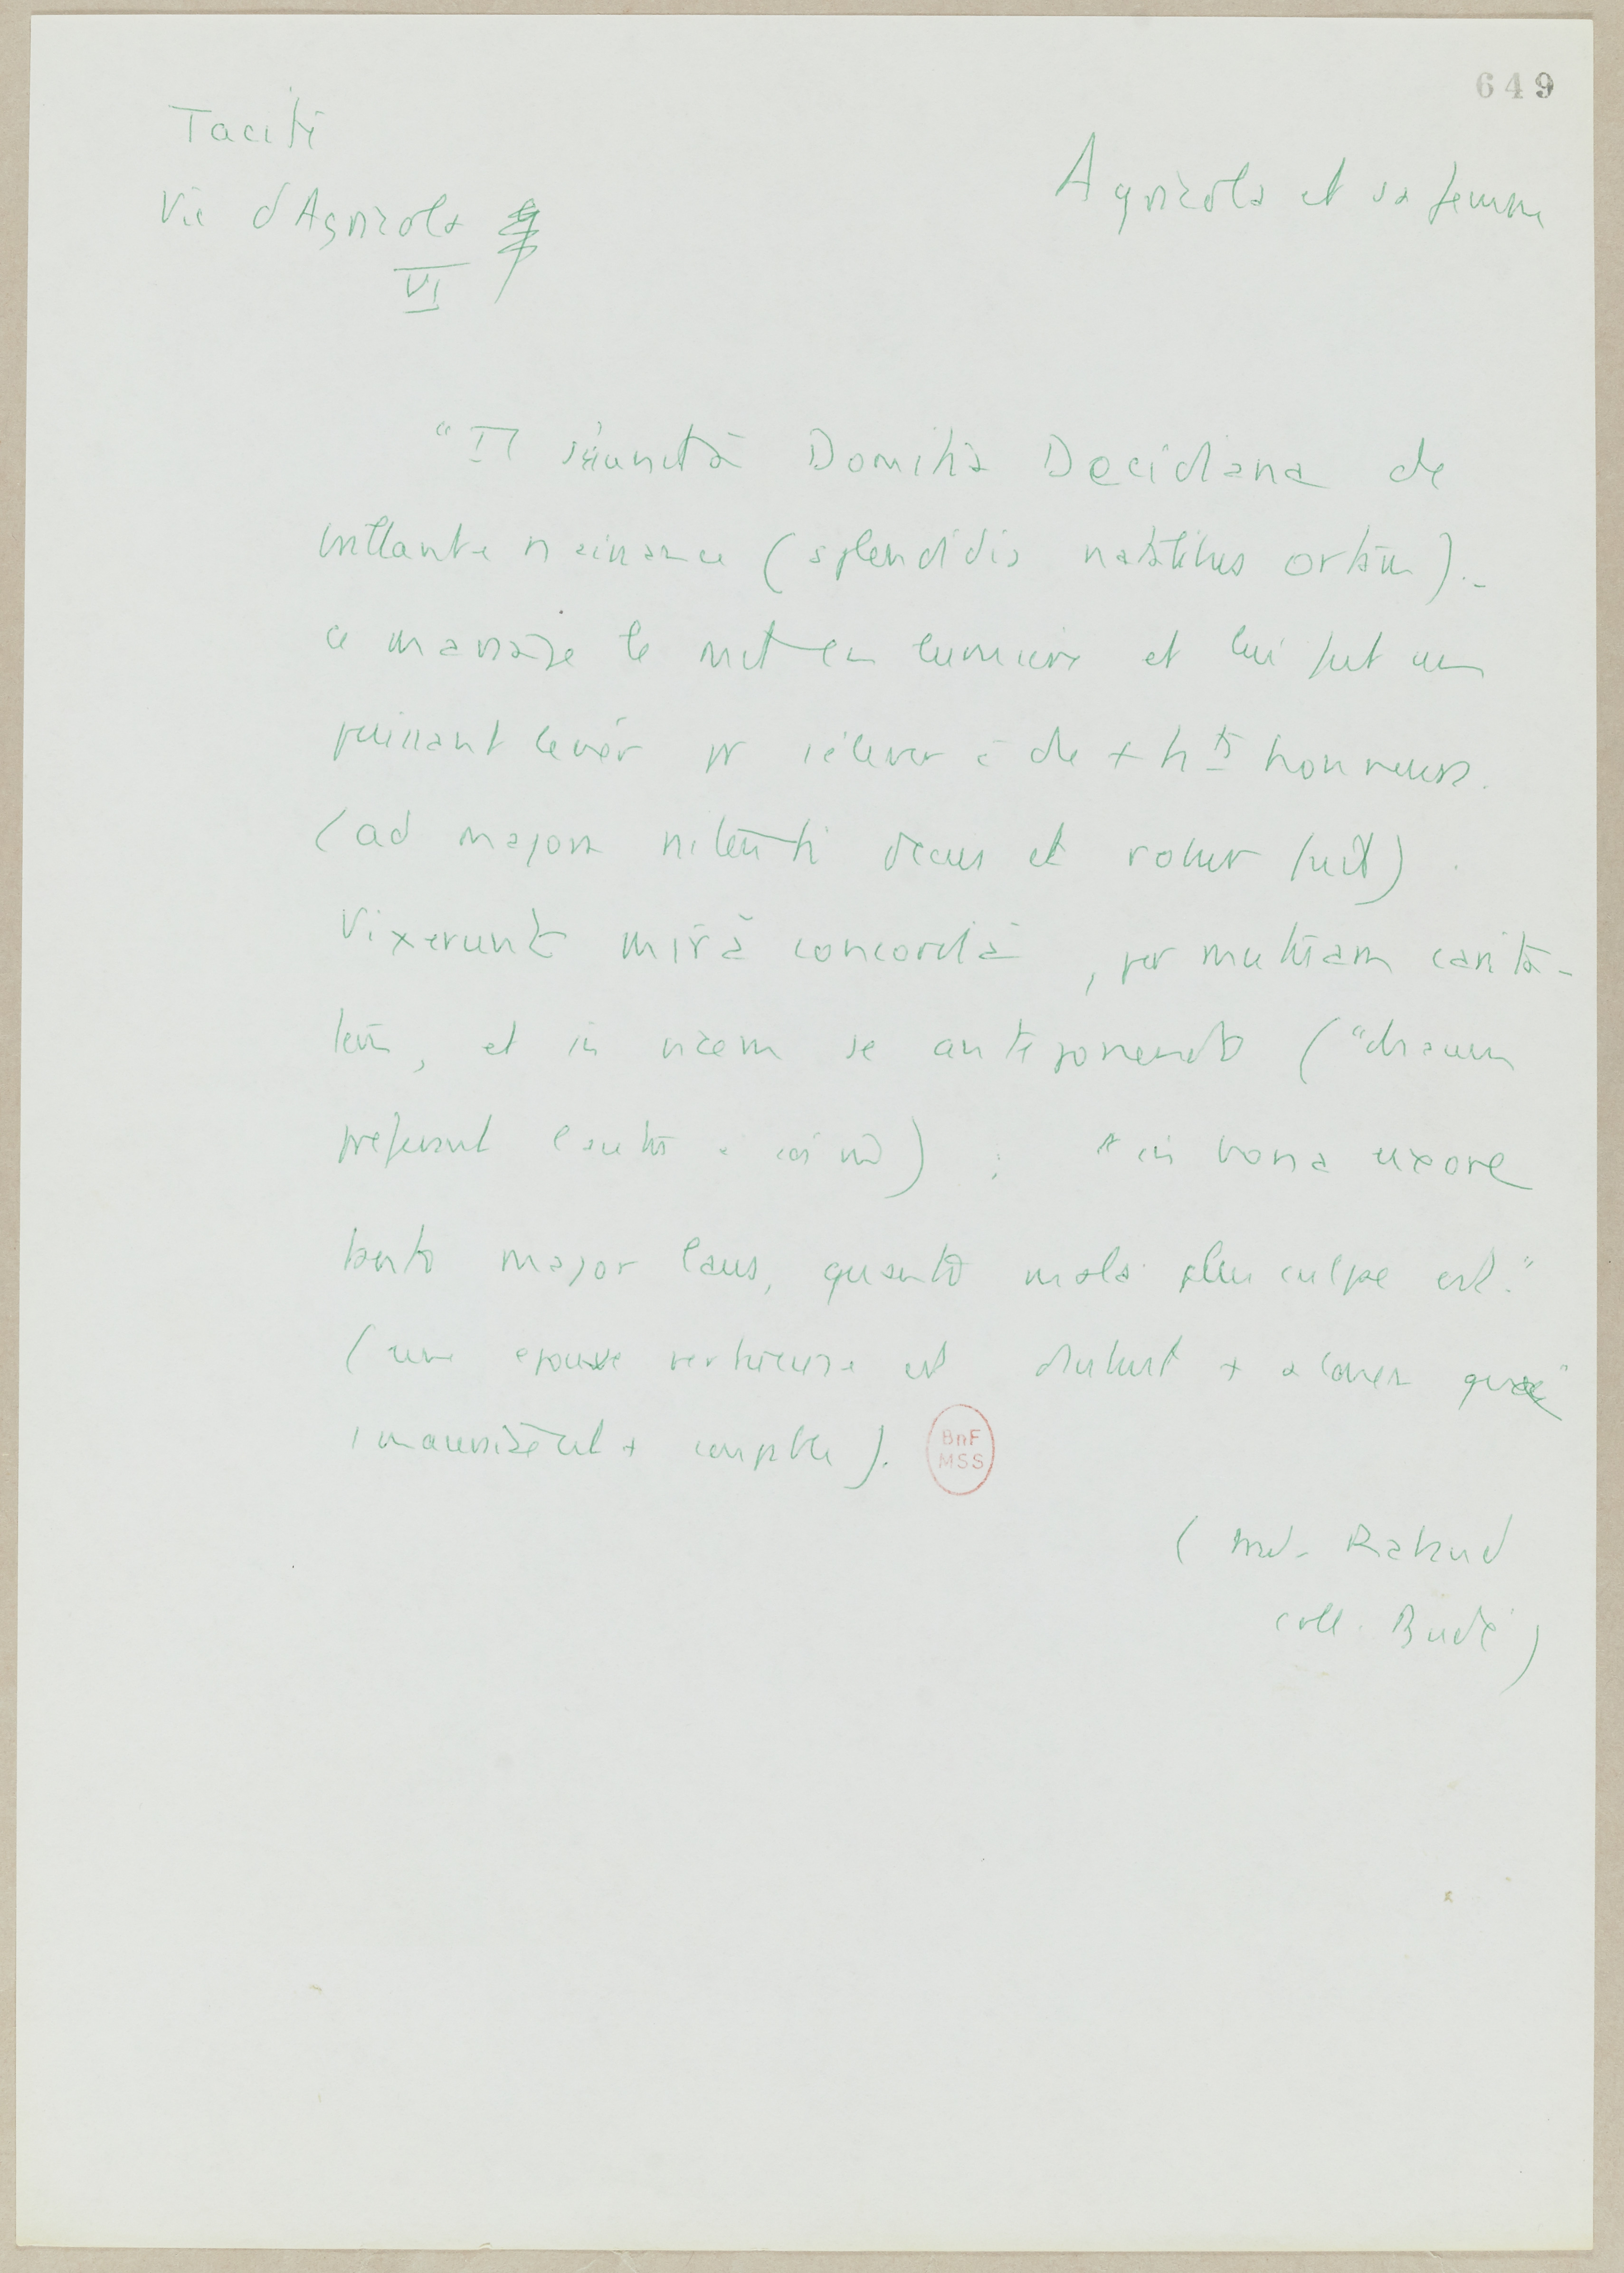 649
Taciti
Vie d'Agricola
VI
Agricola et sa femme
"Il s'unit à Domitia Decidiana de
brillante naissance (splendidis natalibus ortam).-
ce mariage le mit en lumière et lui fut un
puissant levier pr s'élever à de + hts honneurs.
(ad majora nitenti decus et robur fuit)
Vixerunt mirā concordiā, per mutuam carita-
tem, et in vicem se anteponendo ("chacun
préférant l'autre à soi) ; in bona uxore
tanto major laus, quanto mala plus culpe est."
(une épouse vertueuse est d'autant + à louer
mauvaise est + coupble).
BnF
MSS
(trad. Rabaud
coll. Budé)